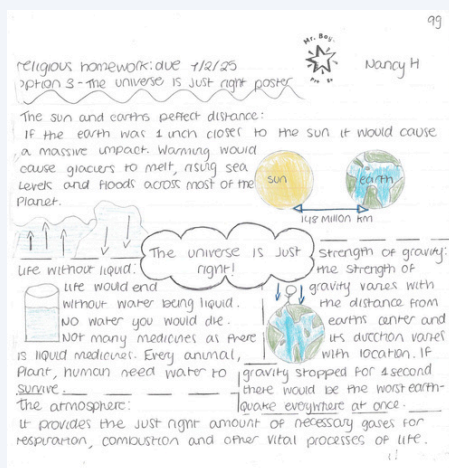 99
religious homework: due 7/2/25
option 3 - The universe is just right poster
Nancy H
The sun and earths perfect distance:
If the earth was 1 inch closer to the sun it would cause
a massive impact. Warming would
cause glaciers to melt, rising sea
levels and floods across most of the
Planet.
sun
earth
148 Million km
The universe is just
right!
Life without liquid:
Life would end
without water being liquid.
No water you would die.
Not many medicines as there
is liquid medicines. Every animal,
Plant, human need water to
survive.
Strength of gravity:
The strength of
gravity varies with
the distance from
earths center and
its direction varies
with location. If
gravity stopped for 1 second
there would be the worst earth-
quake everywhere at once.
The atmosphere:
It provides the just right amount of necessary gases for
respiration, combustion and other vital processes of life.